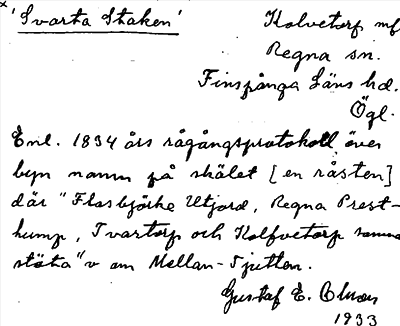 'Svarta Staken'
Kolvetorp mf
Regna sn.
Finspånga Läns hd.
Ögl.
Enl. 1834 års rågångsprotokoll över
byn namn på skälet [en råsten]
där "Flasbjörke Utjord, Regna Prest-
hump, Tvartorp och Kolfvetorp samman
stöta" v om Mellan-Tjutten.
Gustaf E.
1933